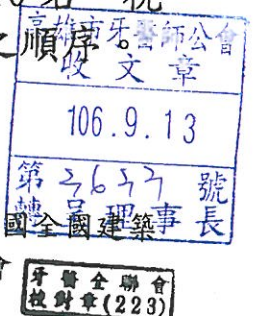 名 稅
之順序。
高雄市牙醫師公會
收文章
106.9.13
第 號
轉呈理事長
國全國建築
會
牙醫全聯會
校對章(223)